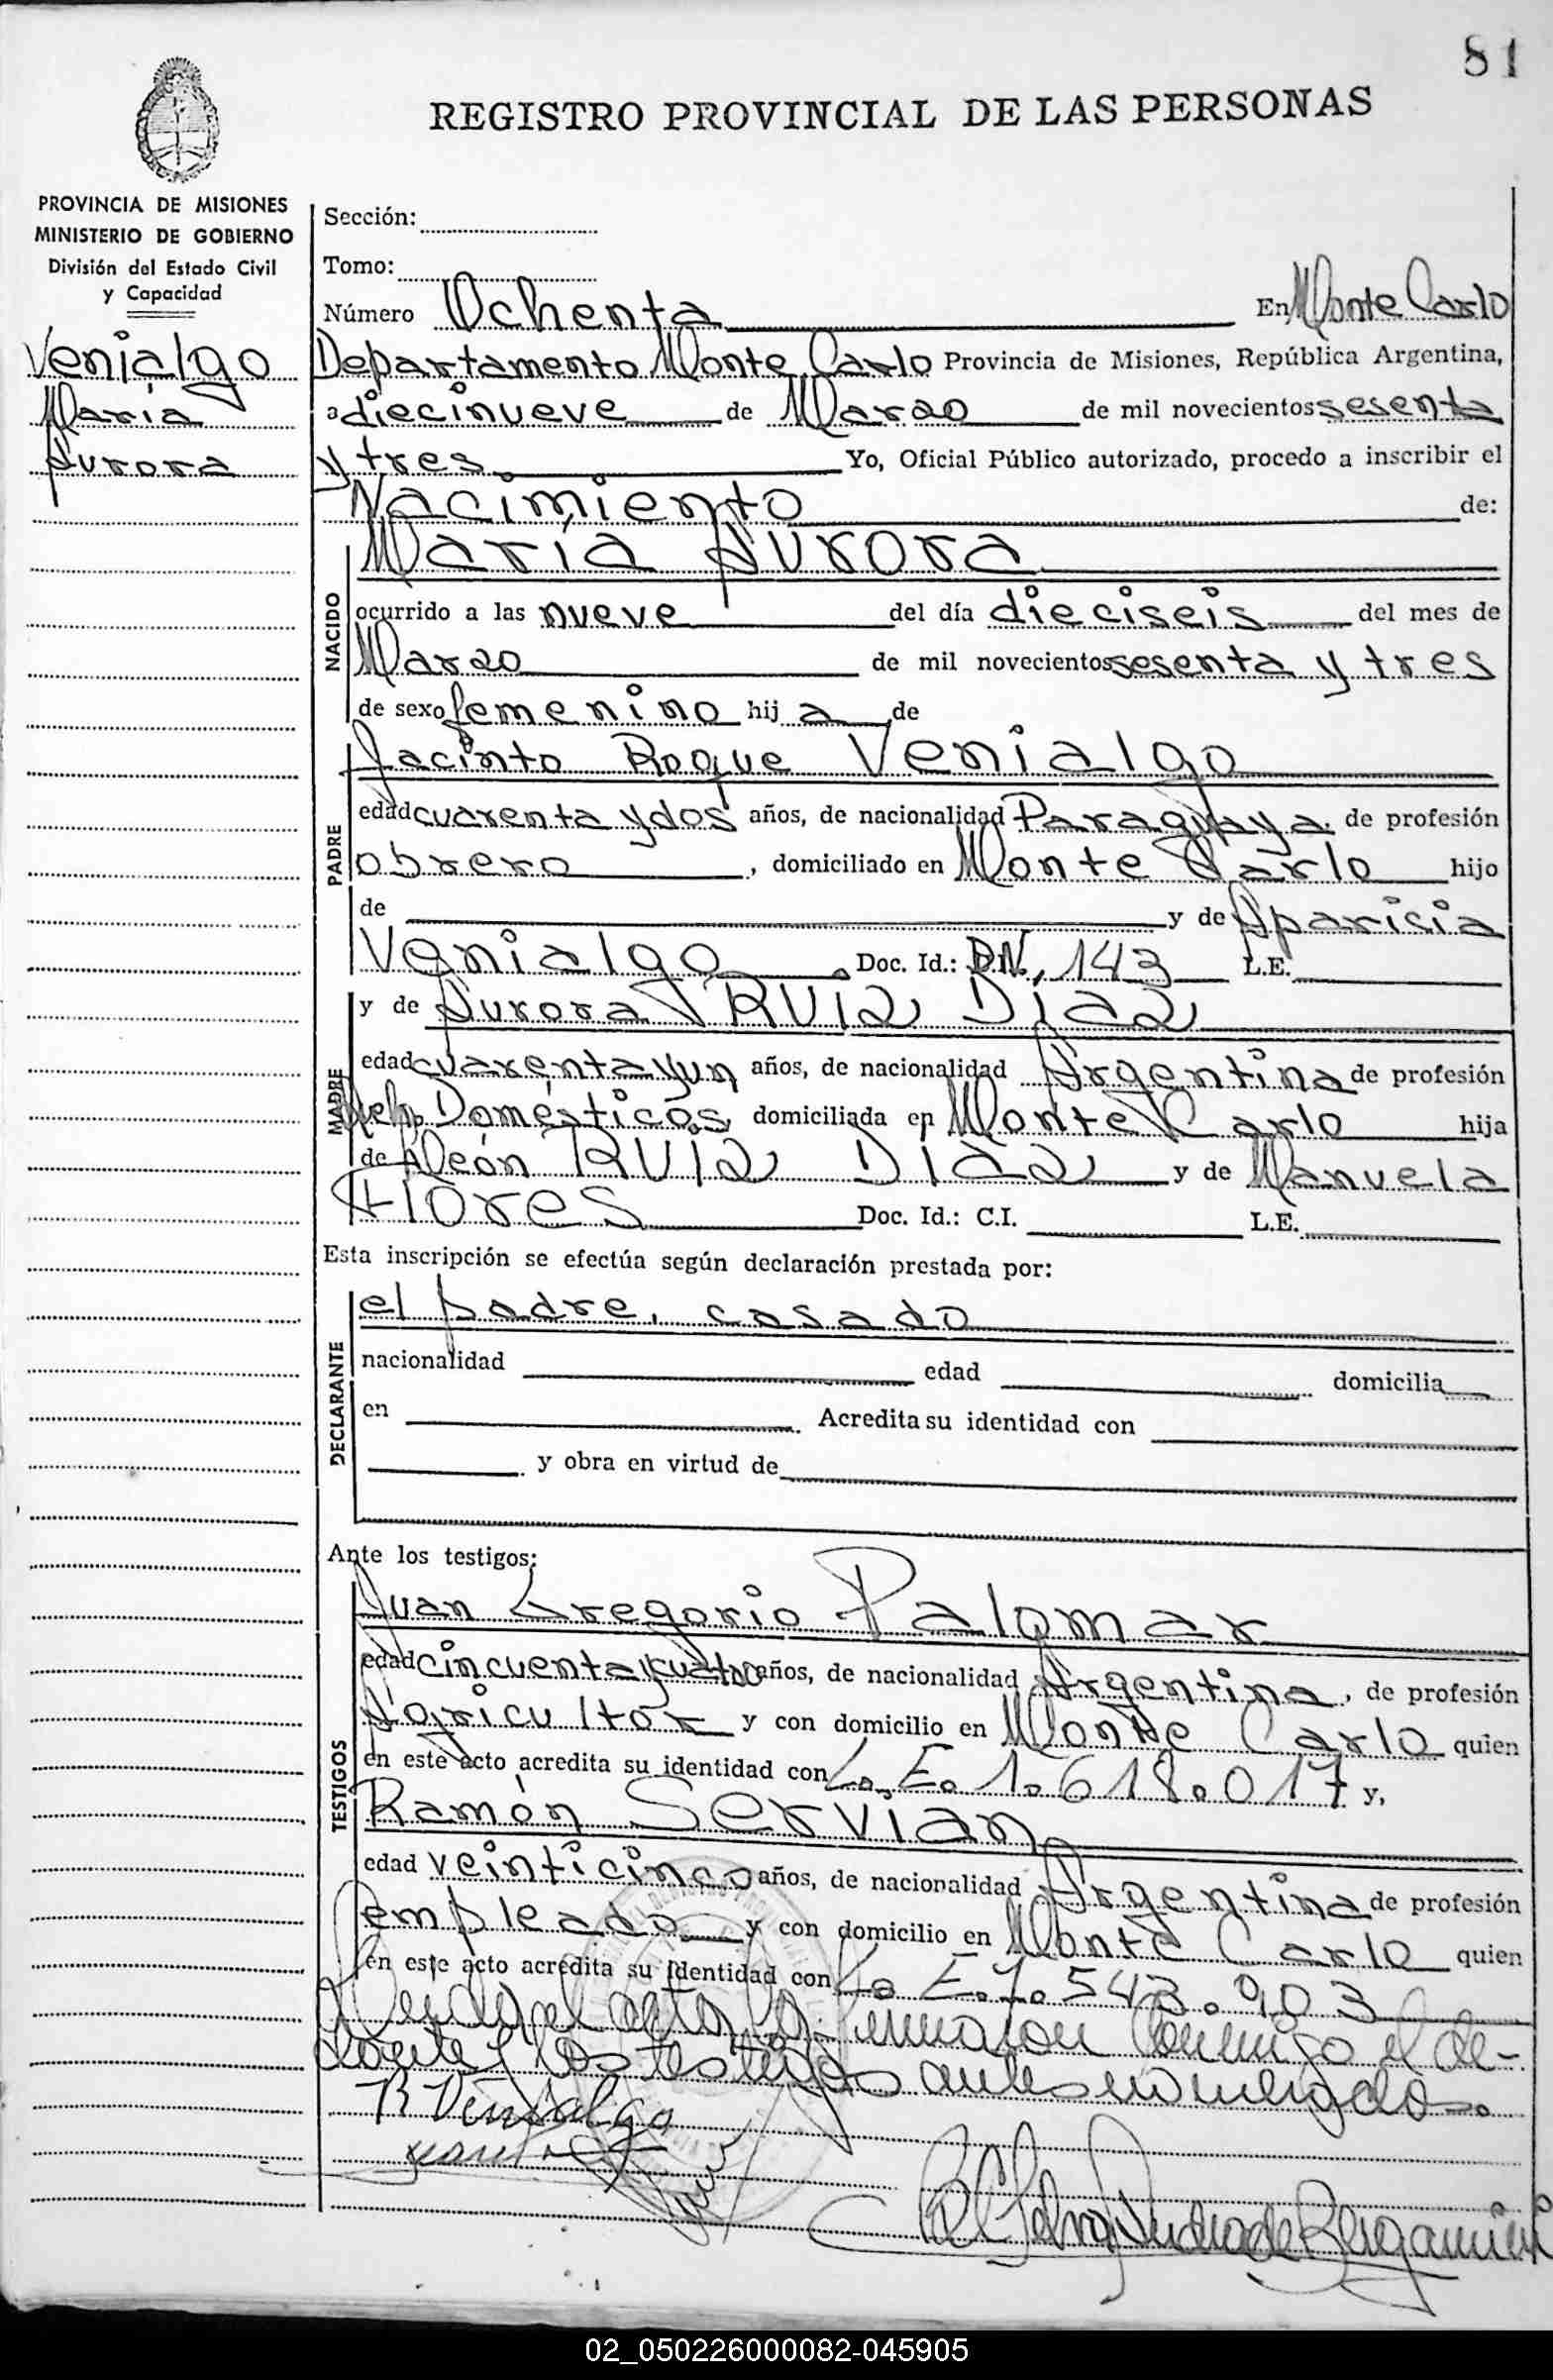 81
REGISTRO PROVINCIAL DE LAS PERSONAS
PROVINCIA DE MISIONES
MINISTERIO DE GOBIERNO
División del Estado Civil
y Capacidad
Venialgo
María
Aurora
Sección:
Tomo:
Número Ochenta En Monte Carlo
Departamento Monte Carlo Provincia de Misiones, República Argentina,
a diecinueve de Marzo de mil novecientos sesenta
y tres Yo, Oficial Público autorizado, procedo a inscribir el
Nacimiento de:
NACIDO
María Aurora
ocurrido a las nueve del día dieciseis del mes de
Marzo de mil novecientos sesenta y tres
de sexo femenino hij a de
PADRE
Jacinto Roque Venialgo
edad cuarenta y dos años, de nacionalidad Paraguaya de profesión
obrero, domiciliado en Monte Carlo hijo
de y de Aparicia
Venialgo. Doc. Id.: 143 L.E.
MADRE
y de Aurora RUIZ DIAZ
edad cuarenta y un años, de nacionalidad Argentina de profesión
Queh. Domésticos, domiciliada en Monte Carlo hija
de León RUIZ DIAZ y de Manuela
Flores Doc. Id.: C.I. L.E.
Esta inscripción se efectúa según declaración prestada por:
DECLARANTE
el padre, casado
nacionalidad edad domicilia
en Acredita su identidad con
y obra en virtud de
Ante los testigos:
TESTIGOS
Juan Gregorio Palomar
edad cincuenta y cuatro años, de nacionalidad Argentina, de profesión
Agricultor y con domicilio en Monte Carlo quien
en este acto acredita su identidad con L. E. 1.618.017 y,
Ramón Servian
edad veinticinco años, de nacionalidad Argentina de profesión
empleado y con domicilio en Monte Carlo quien
en este acto acredita su identidad con L. E. 7.543.903
Leida el acta, la firmaron conmigo el de-
clarante y los testigos antes nombrados.
R Venialgo
de Bergamini
02_050226000082-045905